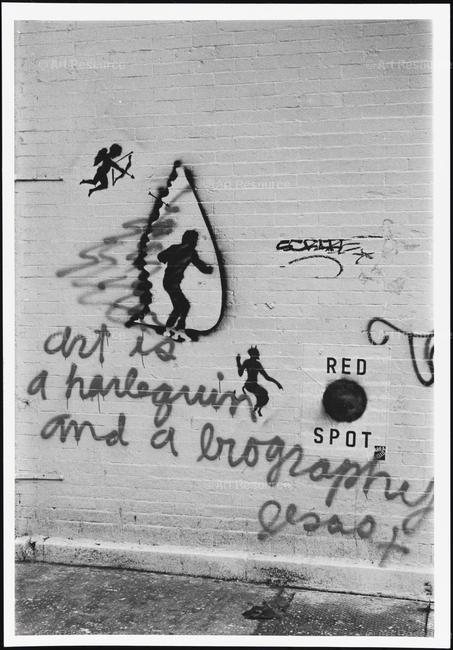 © Art Resource
© Art Resource
© Art Resource
art is
a harlequin
and a biography
RED
SPOT
© Art Resource
© Art Resource